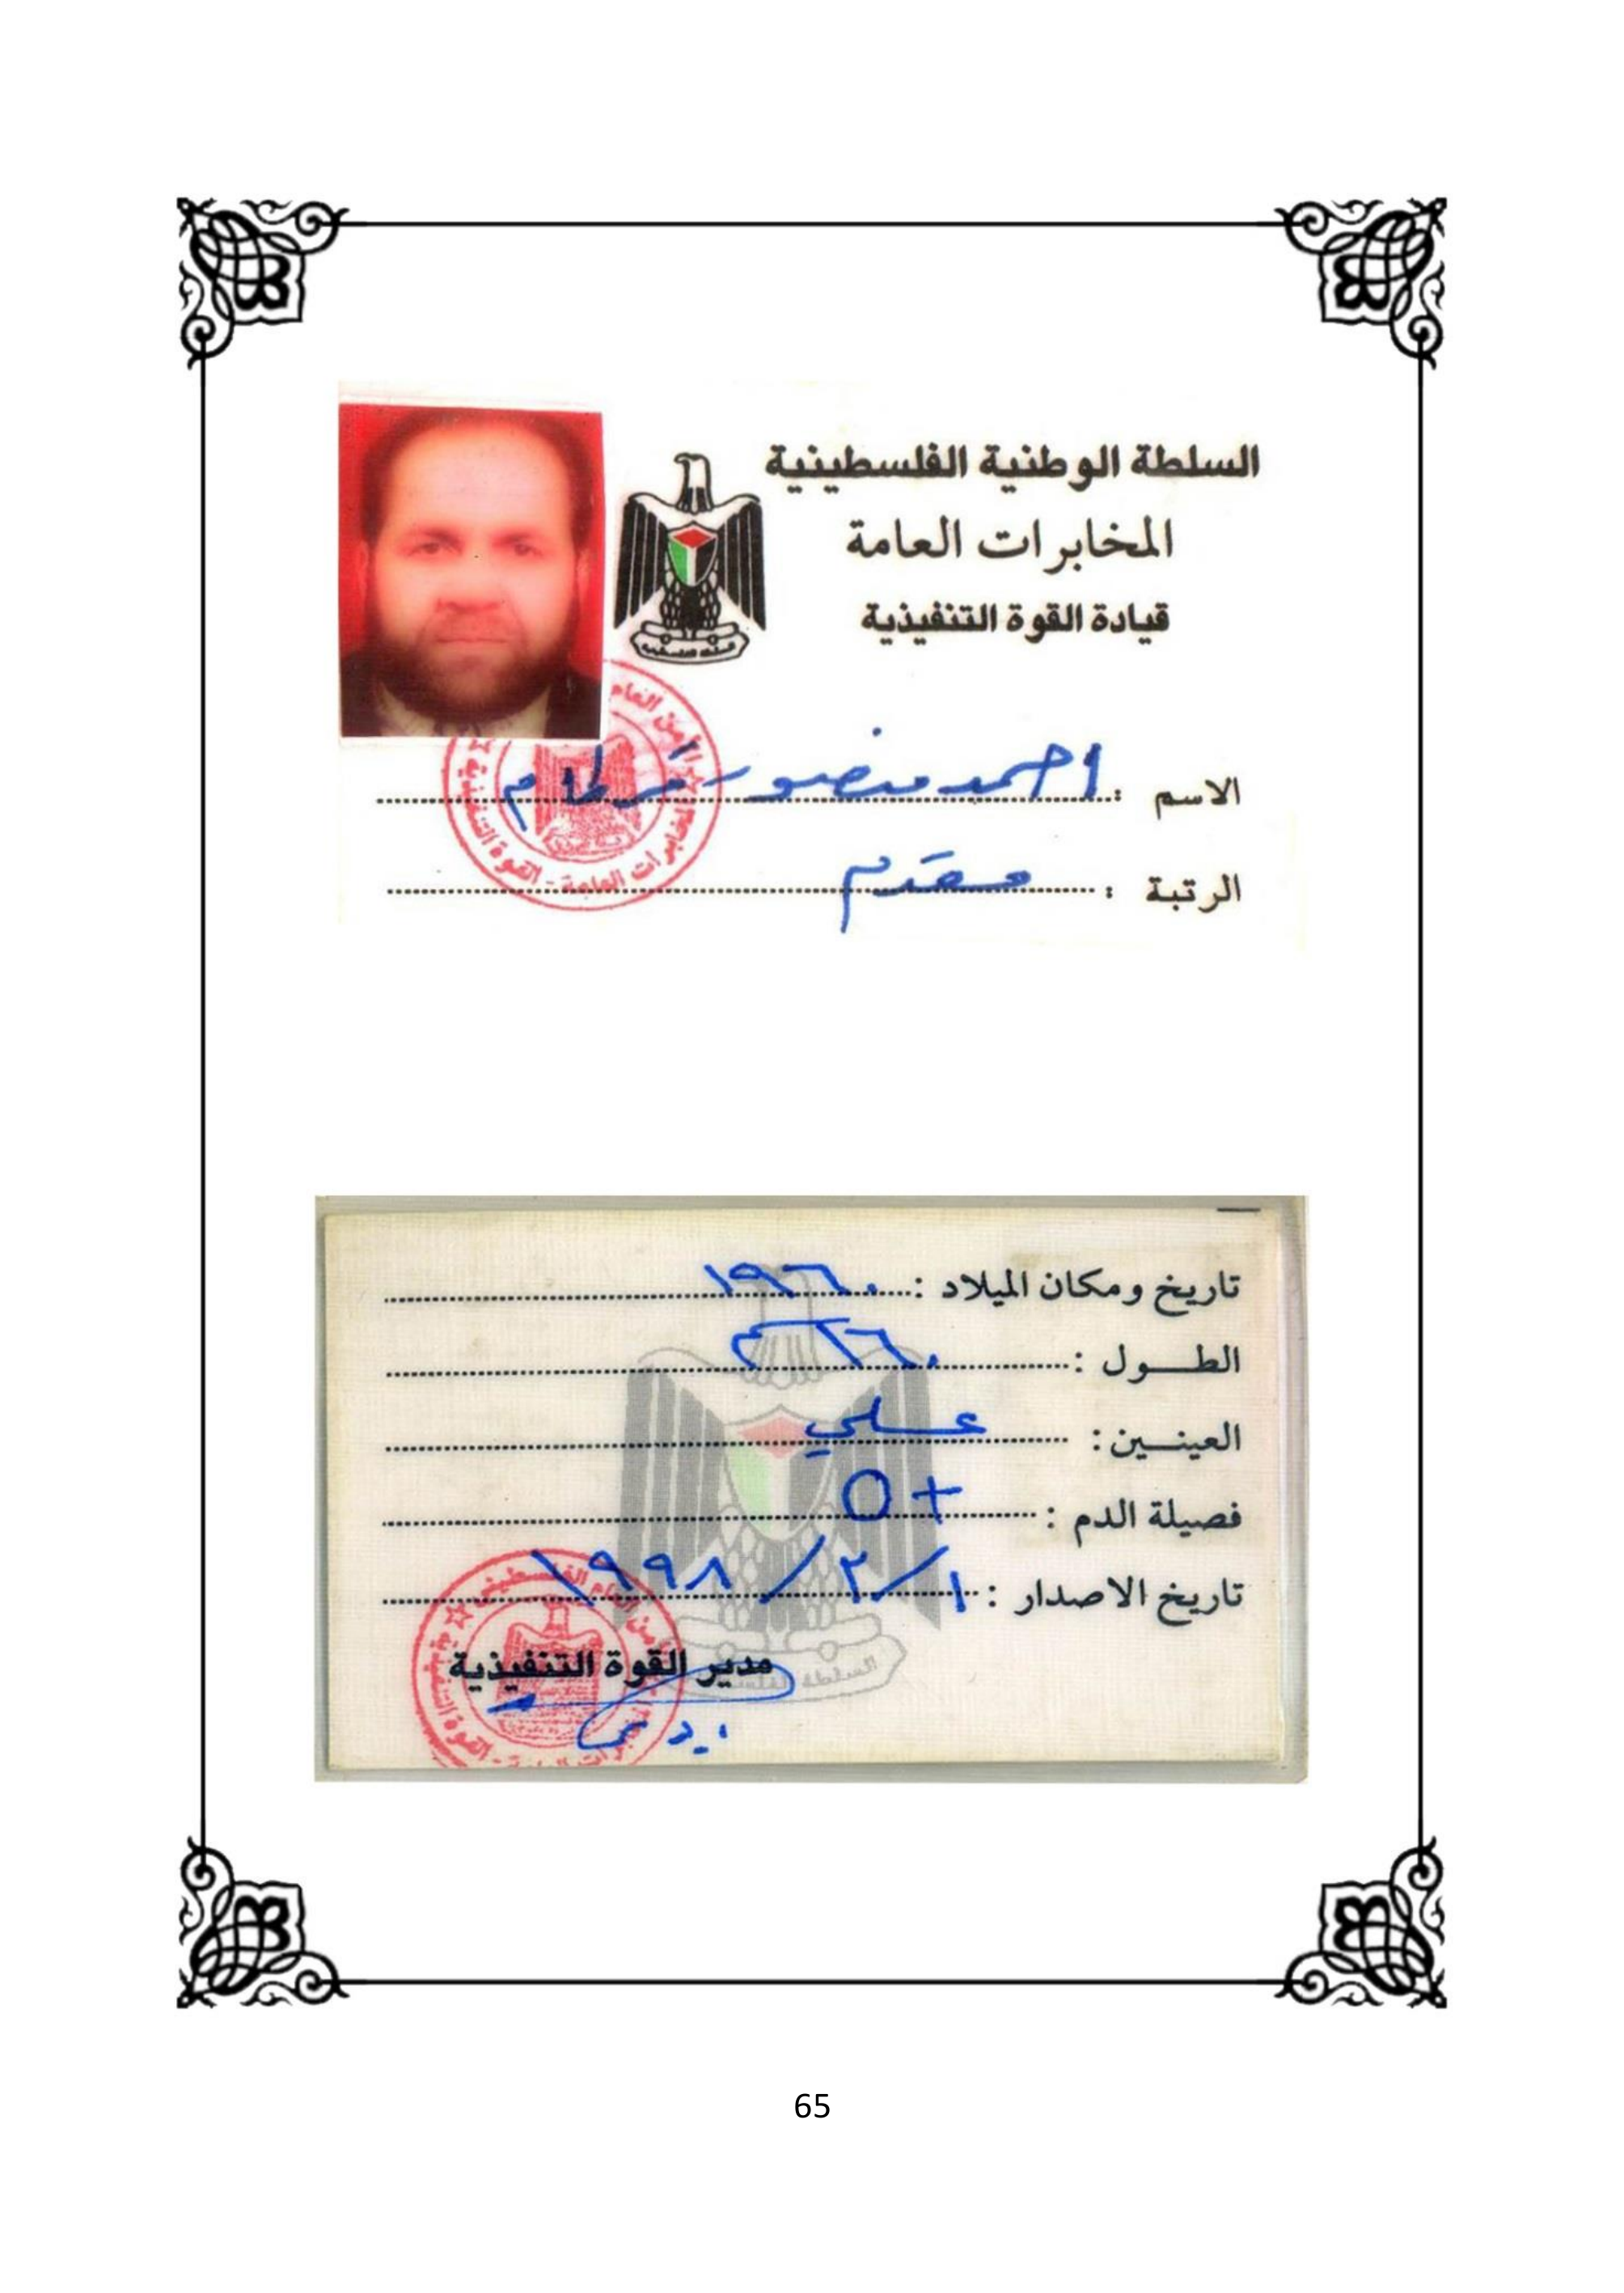 السلطة الوطنية الفلسطينية
المخابرات العامة
قيادة القوة التنفيذية
الاسم : احمد منصور
الرتبة : مقدم
المخابرات العامة - القوة التنفيذية
تاريخ ومكان الميلاد : ١٩٦٠
الطـــول :
العينـــين : عسلي
فصيلة الدم : O+
تاريخ الاصدار : ١/٢/١٩٩٨
مدير القوة التنفيذية
65